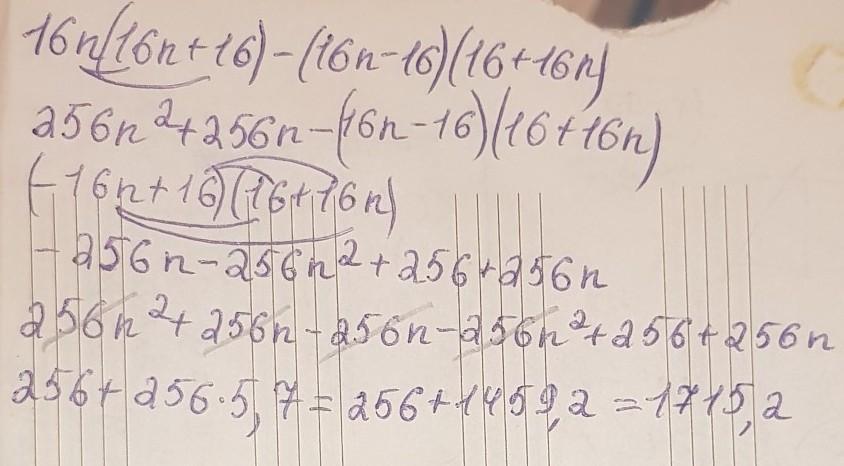 16n(16n+16)-(16n-16)(16+16n)
256n²+256n-(16n-16)(16+16n)
(-16n+16)(16+16n)
-256n-256n²+256+256n
256n²+256n-256n-256n²+256+256n
256+256·5,7=256+1459,2=1715,2